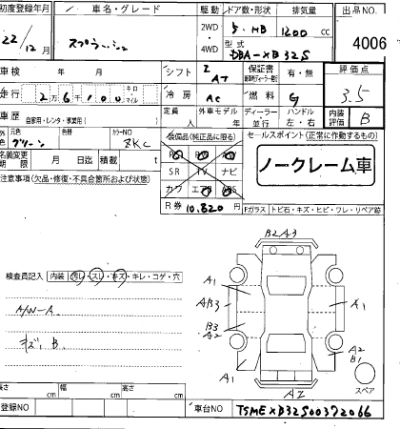 初度登録年月 車名・グレード 駆動 ドア数・形状 排気量 出品NO.
22/12月 スプラッシュ 2WD 4WD 5.HB 1200 cc 4006
型式 DBA-XB32S
車検 年 月 シフト AT 保証書 有・無 評価点 3.5
走行 2万6千100 キロ マイル 冷房 AC 燃料 G
車歴 自家用・レンタ・事業用( 定員 人 外車モデル 年 ディーラー 並行 ハンドル 左・右 内装評価 B
外色 元色 グリーン 色替 カラーNO ZKC 装備品(純正品に限る) セールスポイント(正常に作動するもの)
名義変更期限 月 日迄 積載 t SR TV ナビ ノークレーム車
注意事項(欠品・修復・不具合箇所および状態) カワ エアB
R券 10,820円 Fガラス トビ石・キズ・ヒビ・ワレ・リペア跡
B2 A3
検査員記入 内装 汚レ・スレ・キズ・キレ・コゲ・穴 A1
AB3 A1
A/W-A
B3 A2
キズ. B. A2 B1
A1
スペア
A2
長さ cm 幅 cm 高さ cm
登録NO 車台NO TSMEXB32S00372066